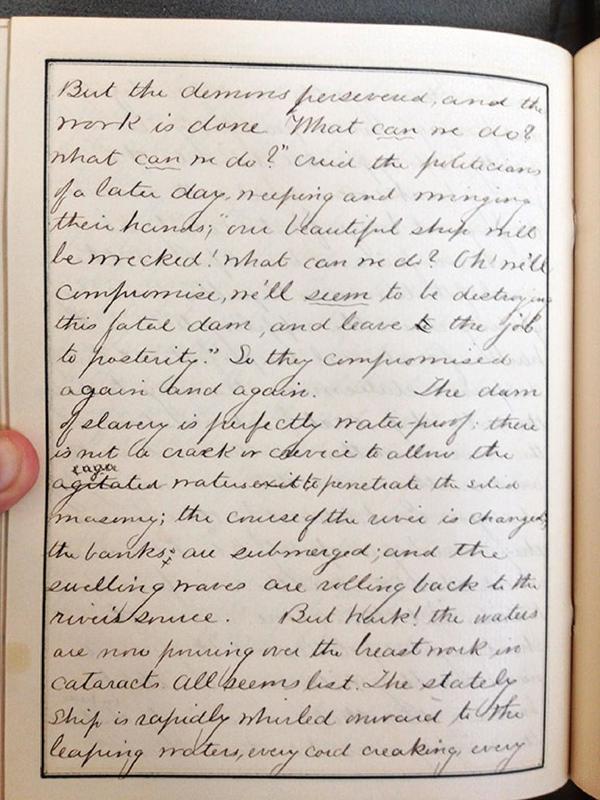 But the demons persevered, and the
work is done. "What can we do?
what can we do?" cried the politicians
of a later day, weeping and wringing
their hands; "our beautiful ship will
be wrecked! what can we do? Oh! we'll
compromise, we'll seem to be destroying
this fatal dam, and leave the job
to posterity." So they compromised
again and again. The dam
of slavery is perfectly water-proof: there
is not a crack or crevice to allow the
eager
agitated waters exit to penetrate the solid
masonry; the course of the river is changed;
the banks are submerged; and the
swelling waves are rolling back to the
river's source. But hark! the waters
are now pouring over the breastwork in
cataracts. All seems lost. The stately
ship is rapidly whirled onward to the
leaping waters, every cord creaking, every